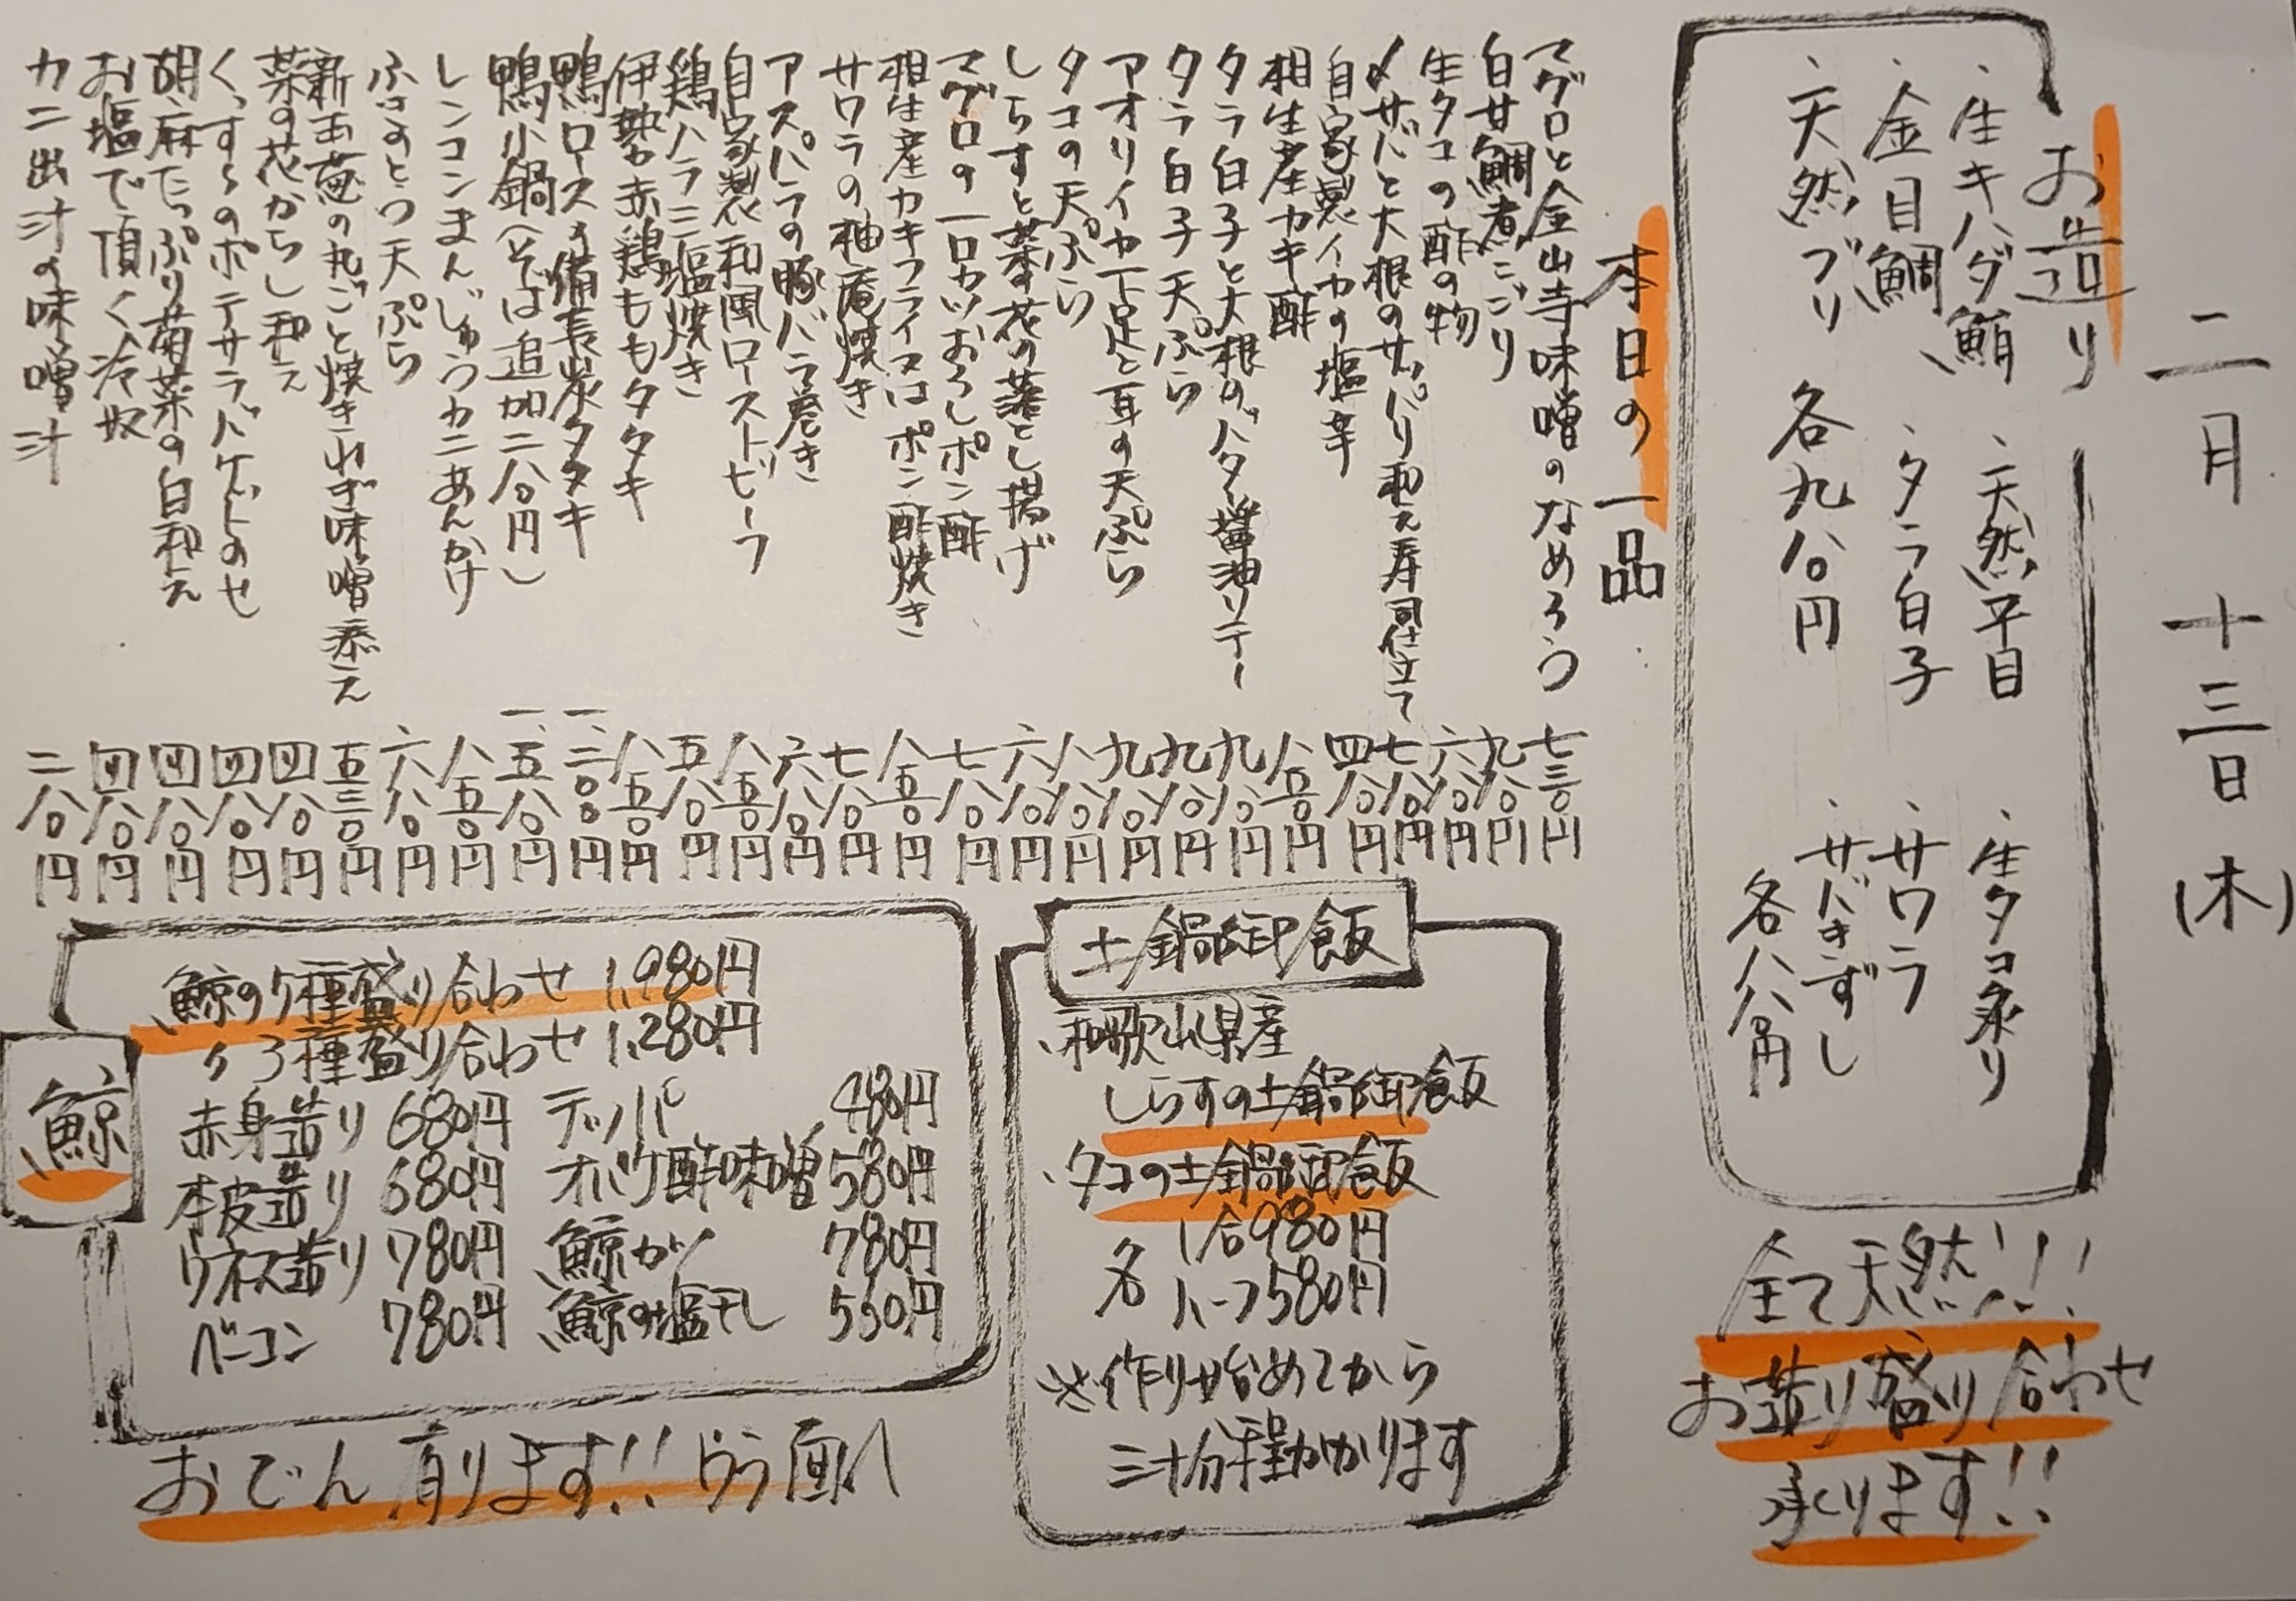 二月 十三日 (木)
お造り
・生キハダ鮪 ・天然平目 ・生タコ炙り
・金目鯛 ・タラ白子 ・サワラ
・天然ブリ 各九八〇円 ・サバきずし
各八八〇円
全て天然!!
お造り盛り合わせ
承ります!!
本日の一品
マグロと金山寺味噌のなめろう 七三〇円
白甘鯛煮こごり 九八〇円
生タコの酢の物 六八〇円
〆サバと大根のサッパリ和え寿司仕立て 七八〇円
自家製イカの塩辛 四八〇円
相生産カキ酢 八五〇円
タラ白子と大根のバター醤油ソテー 九八〇円
タラ白子天ぷら 九八〇円
アオリイカ下足と耳の天ぷら 九八〇円
タコの天ぷら 八八〇円
しらすと菜の花の落とし揚げ 六八〇円
マグロの一口カツおろしポン酢 七八〇円
相生産カキフライ又はポン酢焼き 八五〇円
サワラの柚庵焼き 七八〇円
アスパラの豚バラ巻き 六八〇円
自家製和風ローストビーフ 八五〇円
鶏ハラミ塩焼き 五八〇円
伊勢赤鶏ももタタキ 八五〇円
鴨ロース備長炭タタキ 一、二〇〇円
鴨小鍋(そば追加二八〇円) 一、五八〇円
レンコンまんじゅうカニあんかけ 八五〇円
ふきのとう天ぷら 六八〇円
新玉葱の丸ごと焼きねぎ味噌添え 五三〇円
菜の花からし和え 四八〇円
くずしのポテサラバゲットのせ 四八〇円
胡麻たっぷり菊菜の白和え 四八〇円
お塩で頂く冷奴 四八〇円
カニ出汁の味噌汁 二八〇円
土鍋御飯
・和歌山県産
しらすの土鍋御飯
・タコの土鍋御飯
各 1合980円
ハーフ580円
※作り始めてから
三十分程かかります
鯨
鯨の5種盛り合わせ 1,980円
〃 3種盛り合わせ 1,280円
赤身造り 680円 テッパ 480円
本皮造り 680円 オバケ酢味噌 580円
ウネス造り 780円 鯨カツ 780円
ベーコン 780円 鯨の塩干し 550円
おでん有ります!! ウラ面へ